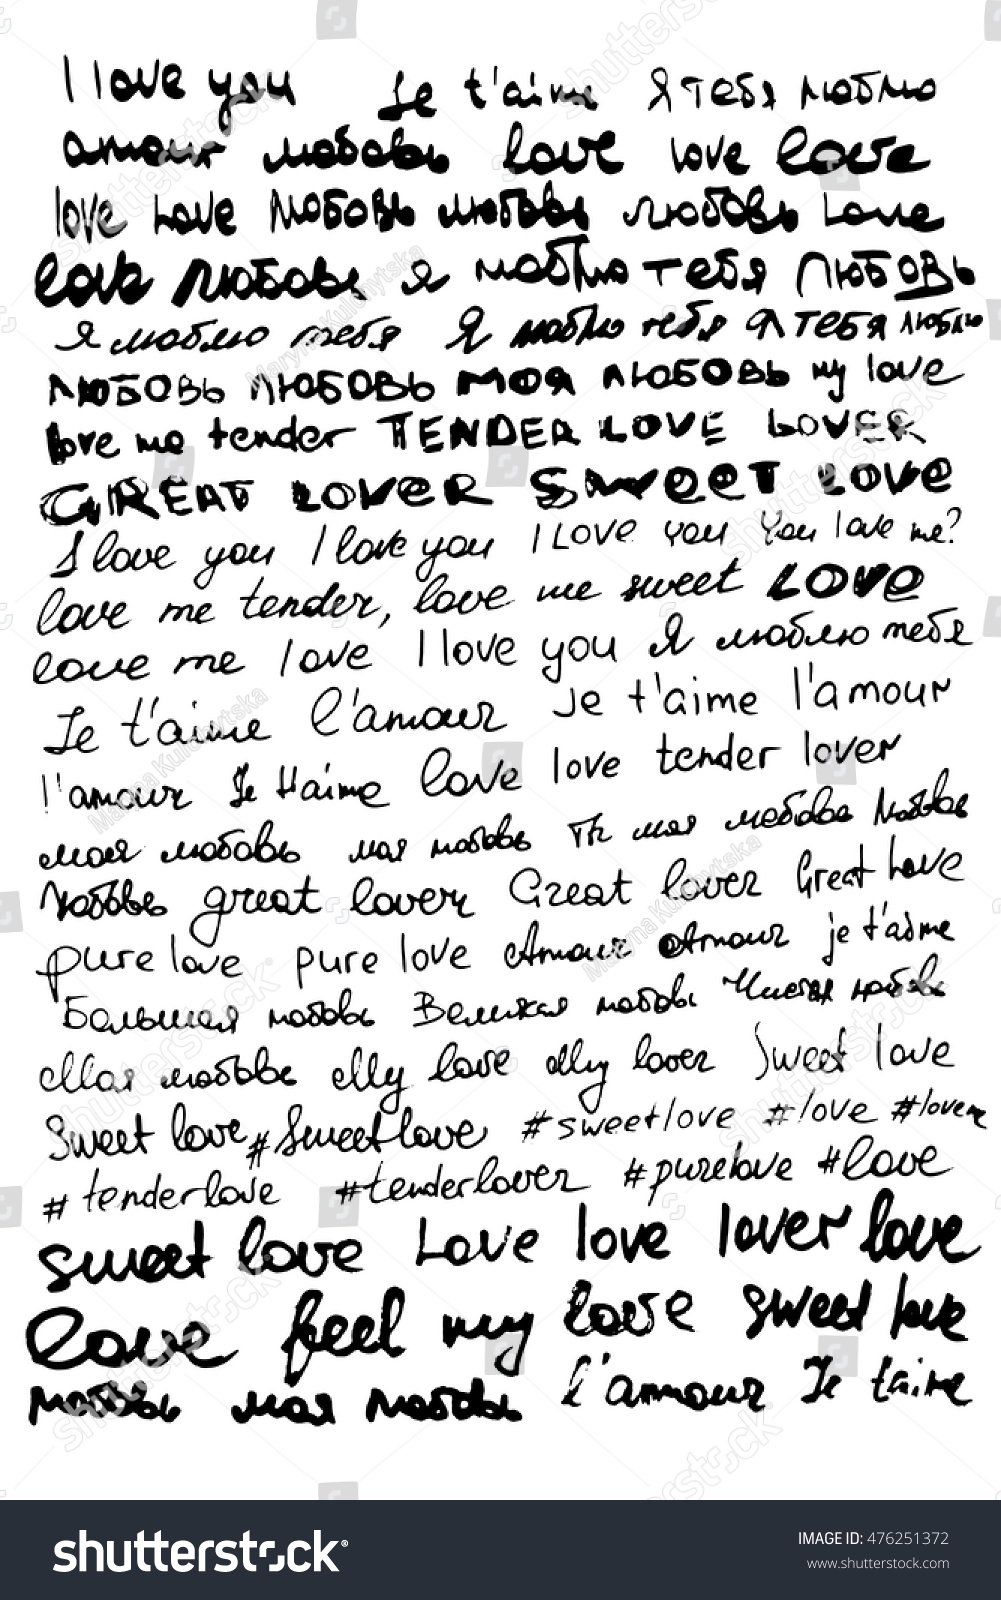 I love you Je t'aime Я тебя люблю
amour любовь love love love
love Love Любовь любовь любовь Love
love любовь я люблю тебя Любовь
Я люблю тебя Я люблю тебя Я тебя люблю
Любовь любовь моя любовь my love
love me tender TENDER LOVE LOVER
GREAT LOVER SWeeT LOVe
I love you I love you I Love you You love me?
love me tender, love me sweet LOVe
love me love I love you Я люблю тебя
Je t'aime l'amour Je t'aime l'amour
l'amour Je t'aime love love tender lover
моя любовь моя любовь Ты моя любовь Любовь
Любовь great lover Great lover Great Love
pure love pure love Amour Amour je t'aime
Большая любовь Великая любовь Чистая любовь
Моя любовь My love My lover Sweet love
Sweet love #Sweetlove #sweetlove #love #lover
#tenderlove #tenderlover #purelove #love
sweet love Love love lover love
love feel my love sweet love
любовь моя любовь l'amour Je t'aime
shutterstock
IMAGE ID: 476251372
www.shutterstock.com